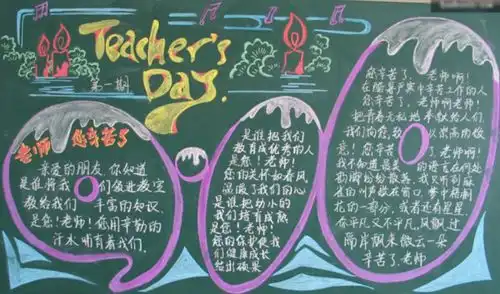 Teacher's
Day.
第一期
老师 您辛苦了
亲爱的朋友,你知道
是谁将我们领进教室
教给我们丰富的知识.
是您!老师!您用辛勤的
汗水哺育着我们.
是谁把我们
教育成优秀的人
是您!老师!
您的关怀如春风
温暖了我们的心
是谁把幼小的
我们培育成熟
是您!老师!
您的保护使我
们健康成长
结出硕果
您辛苦了,老师啊!
在酷暑严寒中辛苦工作的人
您辛苦了,老师啊老师!
把青春无私地奉献给人们
我们向您致以崇高的敬
意!您辛苦了,老师啊!
我不知道最美的语言在何处
花的一部分,或者还有星星.
你平凡又不平凡,风飘过
两岸飘来微云一朵
辛苦了.老师